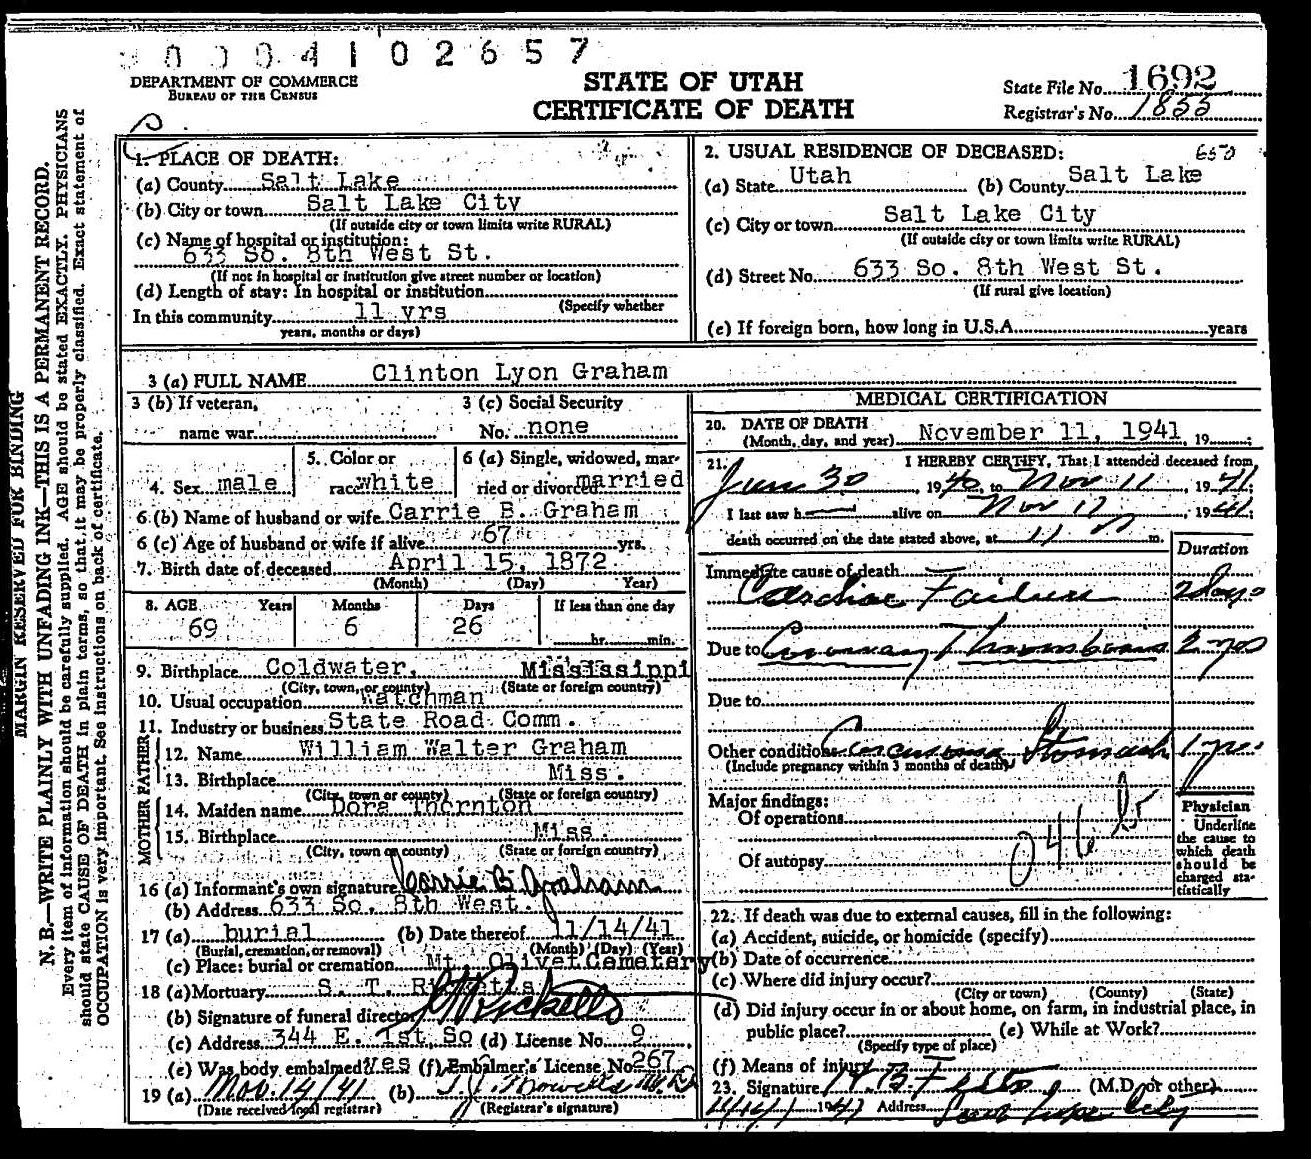 0004102657
DEPARTMENT OF COMMERCE
BUREAU OF THE CENSUS
STATE OF UTAH
CERTIFICATE OF DEATH
State File No. 1692
Registrar's No. 1855
MARGIN RESERVED FOR BINDING
N. B.—WRITE PLAINLY WITH UNFADING INK—THIS IS A PERMANENT RECORD.
Every item of information should be carefully supplied. AGE should be stated EXACTLY. PHYSICIANS
should state CAUSE OF DEATH in plain terms, so that it may be properly classified. Exact statement of
OCCUPATION is very important. See instructions on back of certificate.
1. PLACE OF DEATH:
(a) County Salt Lake
(b) City or town Salt Lake City
(If outside city or town limits write RURAL)
(c) Name of hospital or institution:
633 So. 8th West St.
(If not in hospital or institution give street number or location)
(d) Length of stay: In hospital or institution
(Specify whether
In this community 11 yrs
years, months or days)
2. USUAL RESIDENCE OF DECEASED: 650
(a) State Utah (b) County Salt Lake
(c) City or town Salt Lake City
(If outside city or town limits write RURAL)
(d) Street No. 633 So. 8th West St.
(If rural give location)
(e) If foreign born, how long in U.S.A. years
3 (a) FULL NAME Clinton Lyon Graham
3 (b) If veteran, 3 (c) Social Security
name war No. none
4. Sex male 5. Color or race white 6 (a) Single, widowed, married or divorced married
6 (b) Name of husband or wife Carrie B. Graham
6 (c) Age of husband or wife if alive 67 yrs.
7. Birth date of deceased April 15, 1872
(Month) (Day) Year)
8. AGE Years Months Days If less than one day
69 6 26 hr. min.
9. Birthplace Coldwater, Mississippi
(City, town, or county) (State or foreign country)
10. Usual occupation Watchman
11. Industry or business State Road Comm.
FATHER
12. Name William Walter Graham
13. Birthplace Miss.
(City, town or county) (State or foreign country)
MOTHER
14. Maiden name Dora Thornton
15. Birthplace Miss.
(City, town or county) (State or foreign country)
16 (a) Informant's own signature Carrie B Graham
(b) Address 633 So. 8th West.
17 (a) burial (b) Date thereof 11/14/41
(Burial, cremation, or removal) (Month) (Day) (Year)
(c) Place: burial or cremation Mt. Olivet Cemetery
18 (a) Mortuary S. T. Ricketts
(b) Signature of funeral director Ricketts
(c) Address 344 E. 1st. So (d) License No. 9
(e) Was body embalmed? Yes (f) Embalmer's License No. 267
19 (a) Nov. 14/41 (b)
(Date received local registrar) (Registrar's signature)
MEDICAL CERTIFICATION
20. DATE OF DEATH
(Month, day, and year) November 11, 1941, 19
21. I HEREBY CERTIFY, That I attended deceased from
June 30, 1940, to Nov 11, 1941;
I last saw h alive on Nov 11, 1941;
death occurred on the date stated above, at 11 m.
Duration
Immediate cause of death
Cardiac Failure 2 days
Due to Coronary Thrombosis 2 yrs
Due to
Other conditions Carcinoma Stomach 1 yr
(Include pregnancy within 3 months of death)
Major findings:
Of operations
Of autopsy
046 b
Physician
Underline
the cause to
which death
should be
charged sta-
tistically
22. If death was due to external causes, fill in the following:
(a) Accident, suicide, or homicide (specify)
(b) Date of occurrence
(c) Where did injury occur?
(City or town) (County) (State)
(d) Did injury occur in or about home, on farm, in industrial place, in
public place? (e) While at Work?
(Specify type of place)
(f) Means of injury
23. Signature (M.D. or other)
1941 Address Salt Lake City